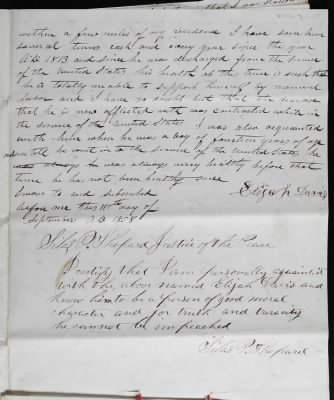 within a few miles of my residence I have seen him
several times each and every year since the year
A.D. 1813 and since he was discharged from the service
of the United States his health at the time is such that
he is totally unable to support himself by manual
labor and I have no doubt but that the disease
that he is now afflicted with was contracted while in
the service of the United States. I was also acquainted
with him when he was a boy of fourteen years of age
until he went in to the service of the United States he
was always very healthy before that
time he has not been healthy since
Sworn to and subscribed
before me this 11th day of
September A.D. 1858
Elijah Davis
Silas P. Shepard Justice of the Peace
I certify that I am personally acquainted
with the above named Elijah Davis and
know him to be a person of good moral
character and for truth and veracity
he cannot be impeached
Silas P. Shepard